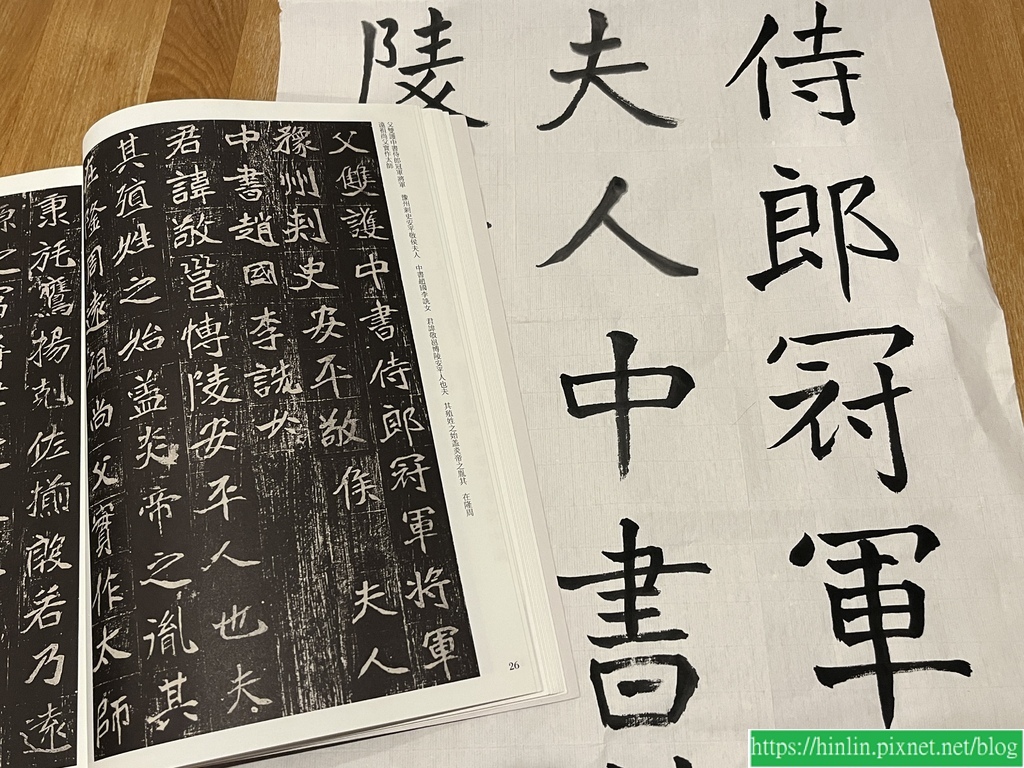 侍郎冠軍
夫人中書
陵
父雙護中書侍郎冠軍将軍
豫州刾史安平敬侯 夫人
中書趙國李詵女
君諱敬邕愽陵安平人也夫
其殖姓之始盖炎帝之胤其
在隆周遠祖尚父實作太師
秉旄鷹揚剋佐揃殷若乃遠
父雙護中書侍郎冠軍將軍 豫州刺史安平敬侯夫人 中書趙國李詵女 君諱敬邕博陵安平人也夫 其殖姓之始盖炎帝之胤其 在隆周
遠祖尚父實作太師
26
https://hinlin.pixnet.net/blog